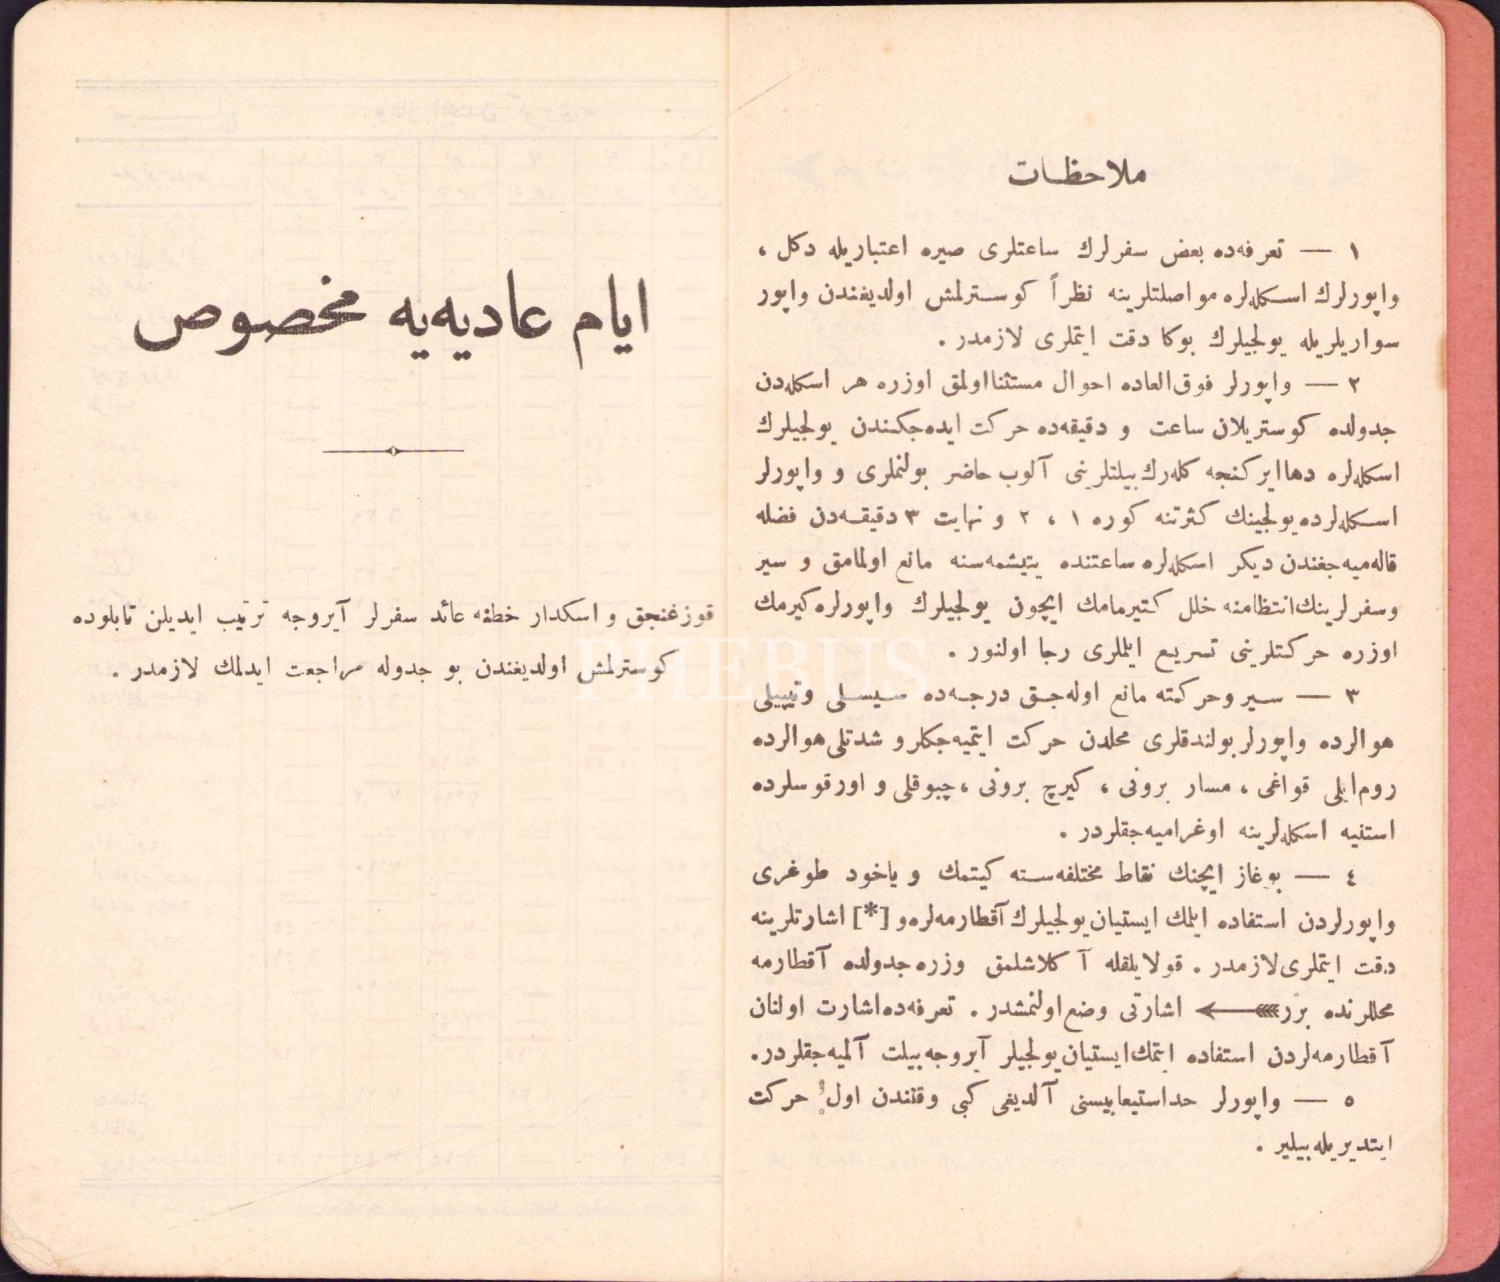 ملاحظات
١ — تعرفه‌ده بعض سفرلرك ساعتلری صیره اعتباریله دكل ،
واپورلرك اسكله‌لره مواصلتلرینه نظراً كوسترلمش اولدیغندن واپور
سواریلریله یولجیلرك بوكا دقت ایتملری لازمدر .
٢ — واپورلر فوق‌العاده احوال مستثنا اولمق اوزره هر اسكله‌دن
جدولده كوستریلان ساعت و دقیقه‌ده حركت ایده‌جكندن یولجیلرك
اسكله‌لره دها ایركنجه كله‌رك بیلتلرینی آلوب حاضر بولنملری و واپورلر
اسكله‌لرده یولجینك كثرتنه كوره ١ ، ٢ و نهایت ٣ دقیقه‌دن فضله
قاله‌میه‌جغندن دیكر اسكله‌لره ساعتنده یتیشمه‌سنه مانع اولمامق و سیر
وسفرلرینك انتظامنه خلل كتیرمامك ایچون یولجیلرك واپورلره كیرمك
اوزره حركتلرینی تسریع ایلملری رجا اولنور .
٣ — سیر وحركته مانع اوله‌جق درجه‌ده سیسلی وتیپیلی
هوالرده واپورلر بولندقلری محلدن حركت ایتمیه‌جكلر و شدتلی هوالرده
روم‌ایلی قواغی ، مسار برونی ، كیرچ برونی ، چبوقلی و اورقوسلرده
استنیه اسكله‌لرینه اوغرامیه‌جقلردر .
٤ — بوغاز ایچنك نقاط مختلفه‌سنه كیتمك و یاخود طوغری
واپورلردن استفاده ایلمك ایستیان یولجیلرك آقطارمه‌لره و [*] اشارتلرینه
دقت ایتملری لازمدر . قولایلقله آكلاشلمق وزره جدولده آقطارمه
محللرنده برر ⟵ اشارتی وضع اولنمشدر . تعرفه‌ده اشارت اولنان
آقطارمه‌لردن استفاده ایتمك ایستیان یولجیلر آیروجه بیلت آلمیه‌جقلردر.
٥ — واپورلر حد استیعابیسنی آلدیغی كبی وقتندن اول حركت
ایتدیریله بیلیر .
ایام عادیه‌یه مخصوص
قوزغنجق و اسكدار خطنه عائد سفرلر آیروجه ترتیب ایدیلن تابلوده
كوسترلمش اولدیغندن بو جدوله مراجعت ایدلمك لازمدر .
PHEBUS